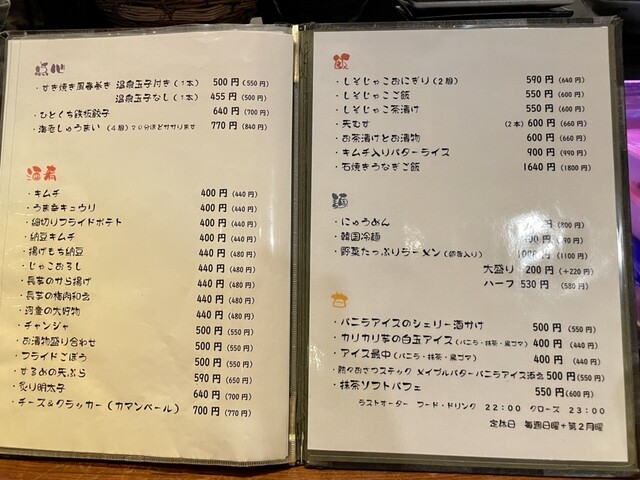 点心
・すき焼き風春巻き 温泉玉子付き(1本) 500円(550円)
温泉玉子なし(1本) 455円(500円)
・ひとくち鉄板餃子 640円(700円)
・海老しゅうまい (4個)20分ほどかかります 770円(840円)
酒肴
・キムチ 400円(440円)
・うま辛キュウリ 400円(440円)
・細切りフライドポテト 400円(440円)
・納豆キムチ 400円(440円)
・揚げもち納豆 440円(480円)
・じゃこおろし 440円(480円)
・長芋のから揚げ 440円(480円)
・長芋の梅肉和え 440円(480円)
・河童の大好物 440円(480円)
・チャンジャ 500円(550円)
・お漬物盛り合わせ 500円(550円)
・フライドごぼう 500円(550円)
・するめの天ぷら 590円(650円)
・炙り明太子 640円(700円)
・チーズ&クラッカー(カマンベール) 700円(770円)
飯
・しそじゃこおにぎり(2個) 590円(640円)
・しそじゃこご飯 550円(600円)
・しそじゃこ茶漬け 550円(600円)
・天むす (2本)600円(660円)
・お茶漬けとお漬物 600円(660円)
・キムチ入りバターライス 900円(990円)
・石焼きうなぎご飯 1640円(1800円)
麺
・にゅうめん 円(800円)
・韓国冷麺 円
・野菜たっぷりラーメン 円(1100円)
大盛り 200円(+220円)
ハーフ 530円(580円)
・バニラアイスのシェリー酒かけ 500円(550円)
・カリカリ芋の白玉アイス(バニラ・抹茶・黒ゴマ) 400円(440円)
・アイス最中(バニラ・抹茶・黒ゴマ) 400円(440円)
・熱々おさつスティック メイプルバターバニラアイス添え 500円(550円)
・抹茶ソフトパフェ 550円(600円)
ラストオーダー フード・ドリンク 22:00 クローズ 23:00
定休日 毎週日曜+第2月曜